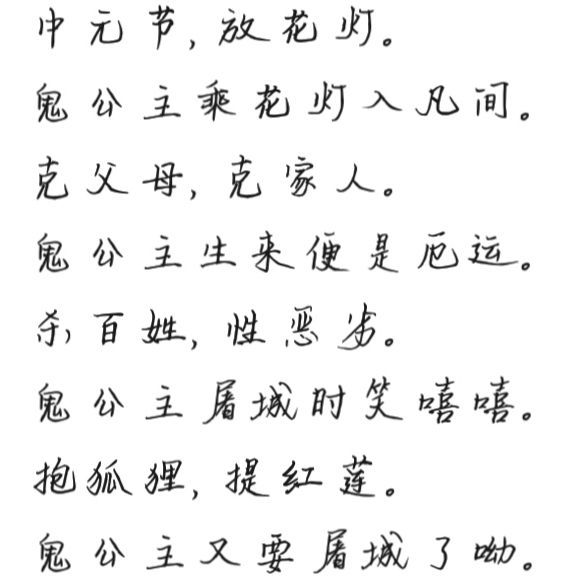 中元节，放花灯。
鬼公主乘花灯入凡间。
克父母，克家人。
鬼公主生来便是厄运。
杀百姓，性恶劣。
鬼公主屠城时笑嘻嘻。
抱狐狸，提红莲。
鬼公主又要屠城了呦。